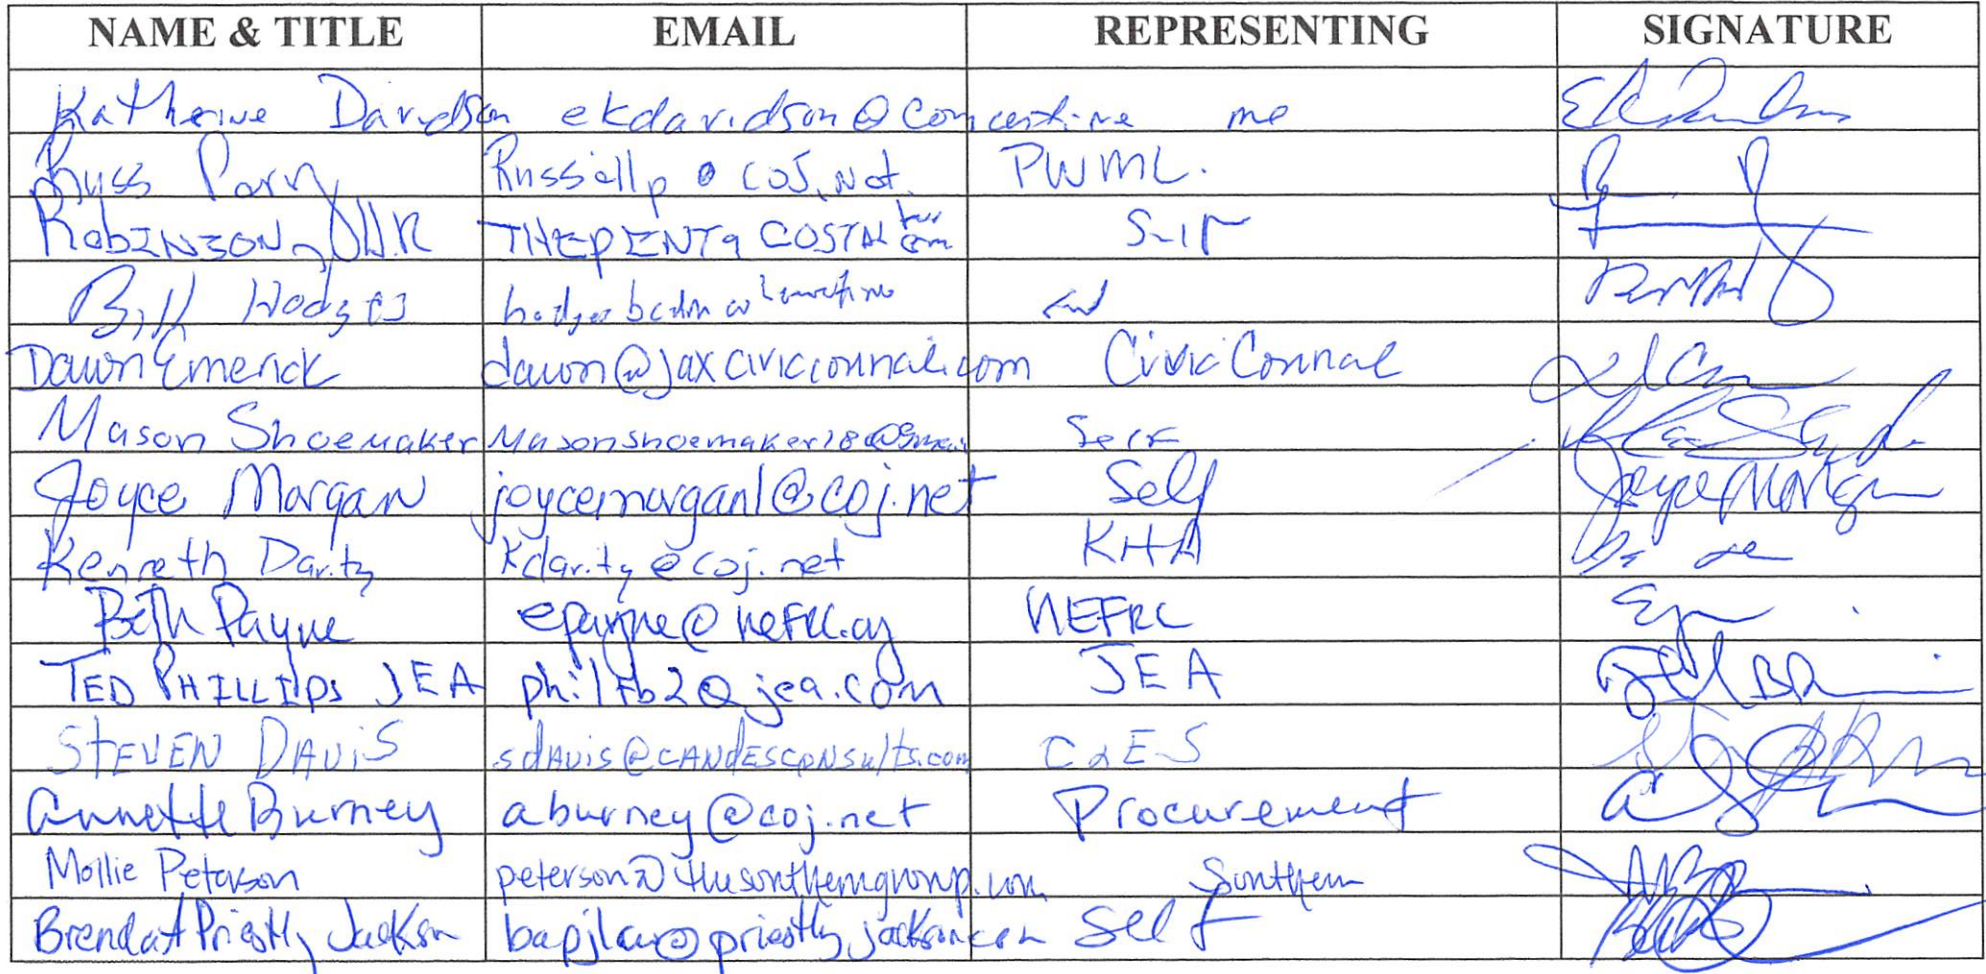 NAME & TITLE EMAIL REPRESENTING SIGNATURE
Katherine Davidson ekdavidson@comcast.net me
Russ Parry Russellp@coj.net. PWML.
ROBINSON, THEPENTACOSTAL Self
Bill Hodges
Dawn Emerick dawn@jaxciviccouncil.com Civic Council
Mason Shoemaker Masonshoemaker18@gmail Self
Joyce Morgan joycemorgan1@coj.net Self Joyce Morgan
Kenneth Darity Kdarity@coj.net KHA
Beth Payne epayne@nefrc.org NEFRC
TED PHILLIPS JEA philfb2@jea.com JEA
STEVEN DAVIS sdavis@CANDESCONSULTS.com C&ES
Annette Burney aburney@coj.net Procurement
Mollie Peterson peterson@thesoutherngroup.com Southern
Brenda A Priestly Jackson bapjlaw@priestlyjackson.com Self